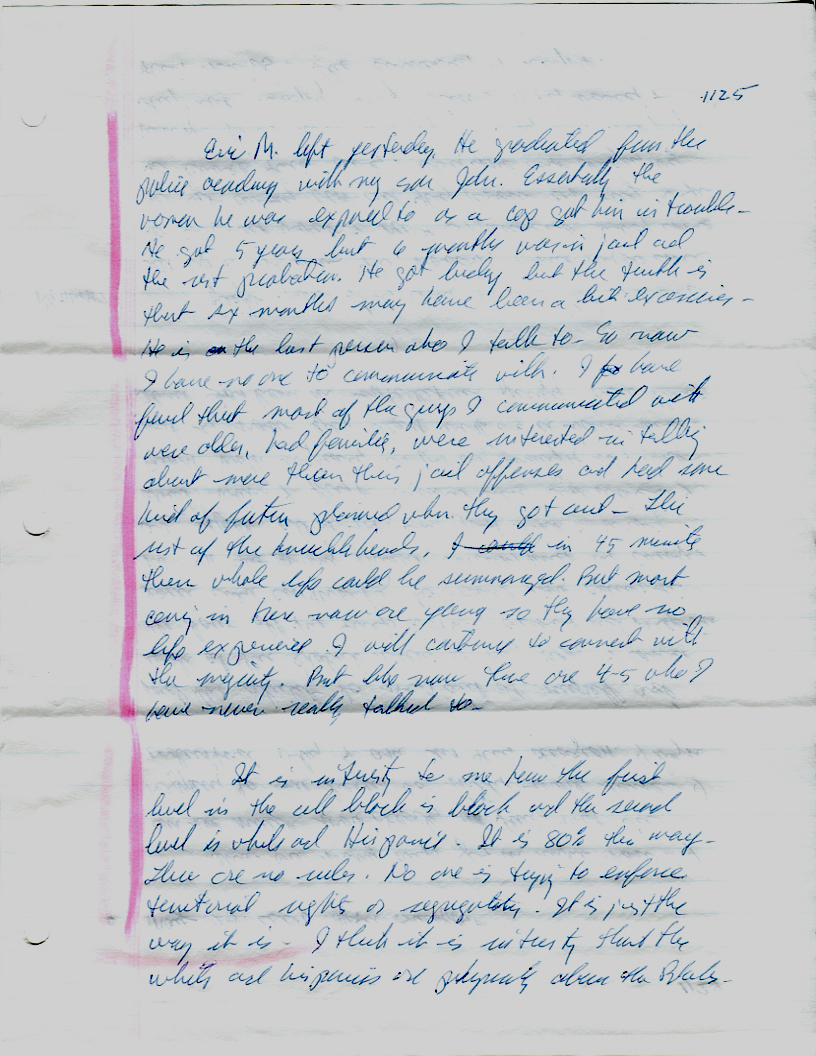 1125
Eric M. left yesterday. He graduated from the
police academy with my son John. Essentially the
women he was exposed to as a cop got him in trouble-
He got 5 years but 6 months was in jail ad
the rest probation. He got lucky but the truth is
that six months may have been a bit excessive-
He is the last person who I talk to- So now
I have no one to communicate with. I have
found that most of the guys I communicated with
were older, had families, were interested in talking
about more than their jail offenses ad had some
kind of future planned when they got out- The
rest of the knuckleheads, I could in 45 minutes
their whole life could be summarized. But most
coming in here now are young so they have no
life experience. I will continue to connect with
the majority. But like now there are 4-5 who I
have never really talked to-
It is interesting to me how the first
level in the cell block is black ad the second
level is white ad Hispanic. It is 80% this way-
There are no rules. No one is trying to enforce
territorial rights or segregation. It is just the
way it is- I think it is interesting that the
whites ad hispanics are above the Blacks-